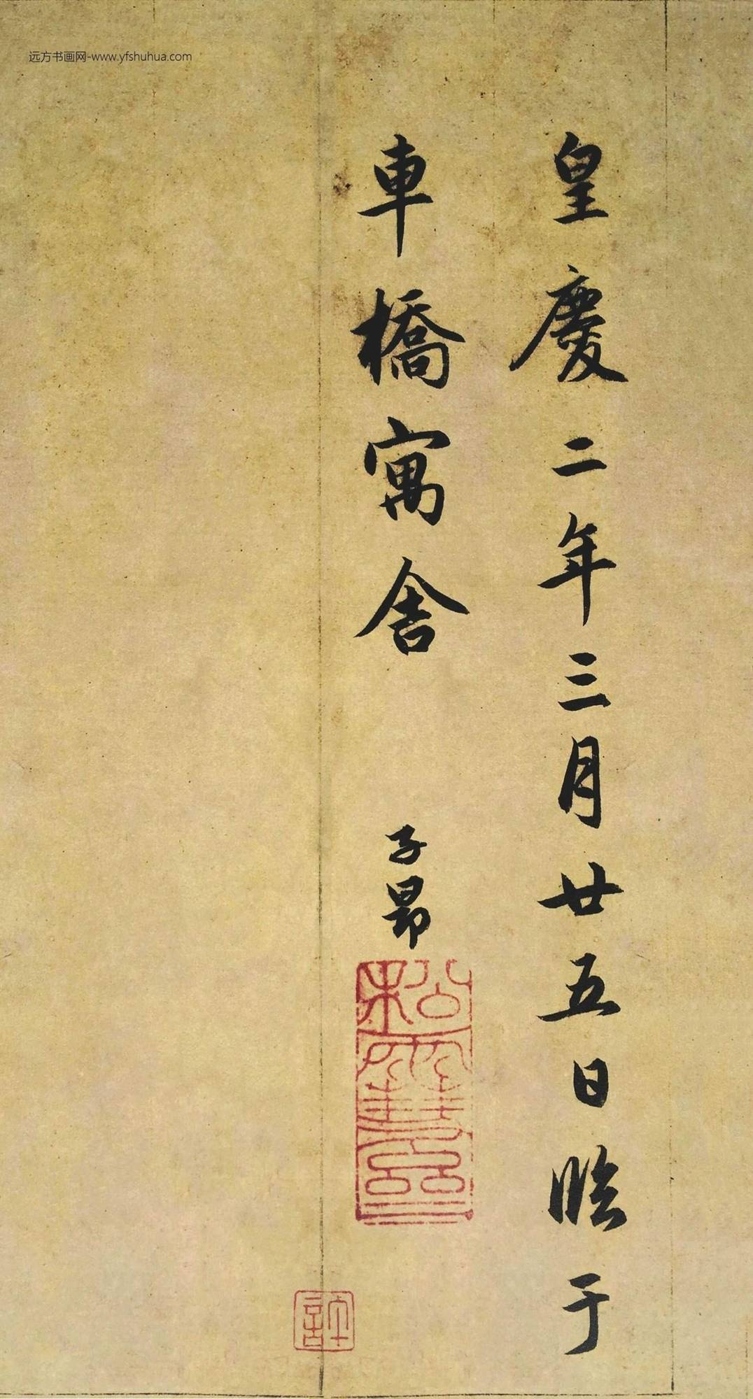 远方书画网-www.yfshuhua.com
皇慶二年三月廿五日臨于
車橋寓舍
子昂
松雪齋
許